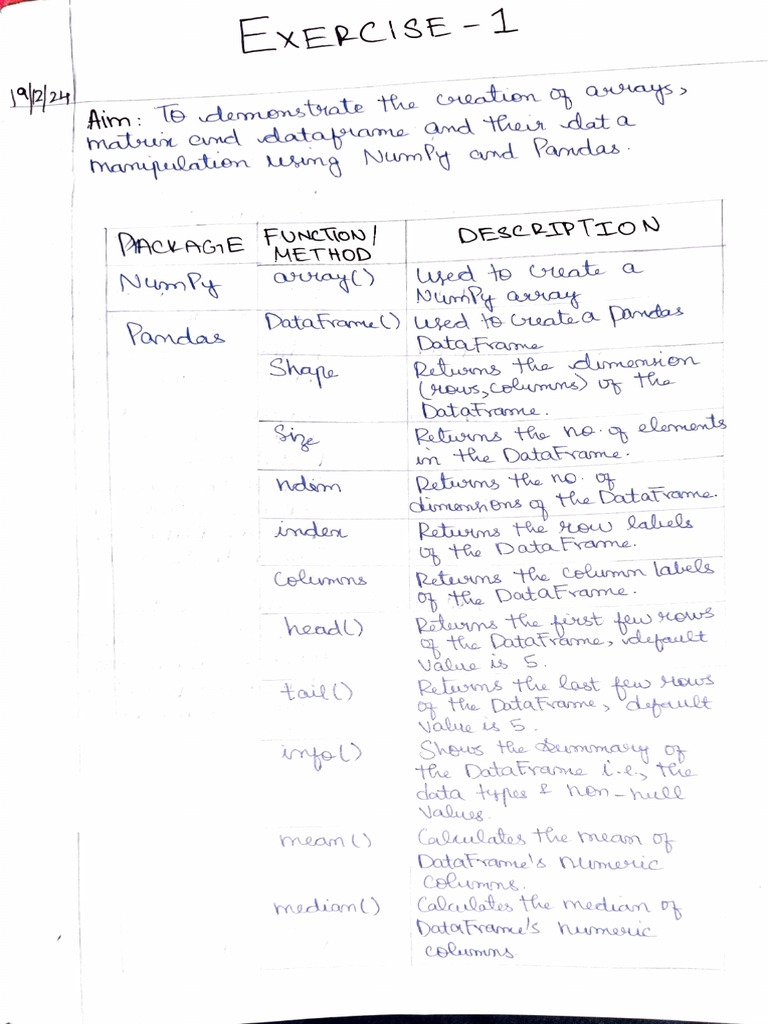 EXERCISE-1
19/12/24
Aim: To demonstrate the creation of arrays,
matrix and dataframe and their data
manipulation using NumPy and Pandas.
PACKAGE FUNCTION/ METHOD DESCRIPTION
NumPy array() Used to create a
NumPy array
Pandas DataFrame() Used to create a pandas
DataFrame
Shape Returns the dimension
(rows, columns) of the
DataFrame.
Size Returns the no. of elements
in the DataFrame.
ndim Returns the no. of
dimensions of the DataFrame.
index Returns the row labels
of the DataFrame.
Columns Returns the column labels
of the DataFrame.
head() Returns the first few rows
of the DataFrame, default
value is 5.
tail() Returns the last few rows
of the DataFrame, default
value is 5.
info() Shows the Summary of
the DataFrame i.e., the
data types & non-null
values.
mean() Calculates the mean of
DataFrame's numeric
columns.
median() Calculates the median of
DataFrame's numeric
columns